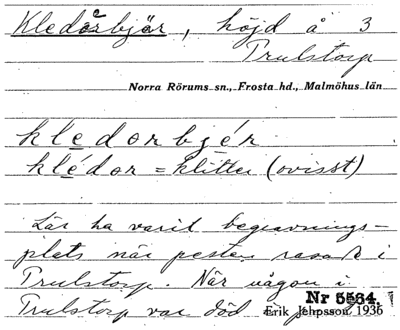 Kledorbjär, höjd å 3
Trulstorp
Norra Rörums sn., Frosta hd., Malmöhus län
kledorbjér
klédor = klitter (ovisst)
Lär ha varit begravnings-
plats när pesten rasade i
Trulstorp. När någon i
Trulstorp var död
Nr 5564.
Erik Jeppsson, 1936